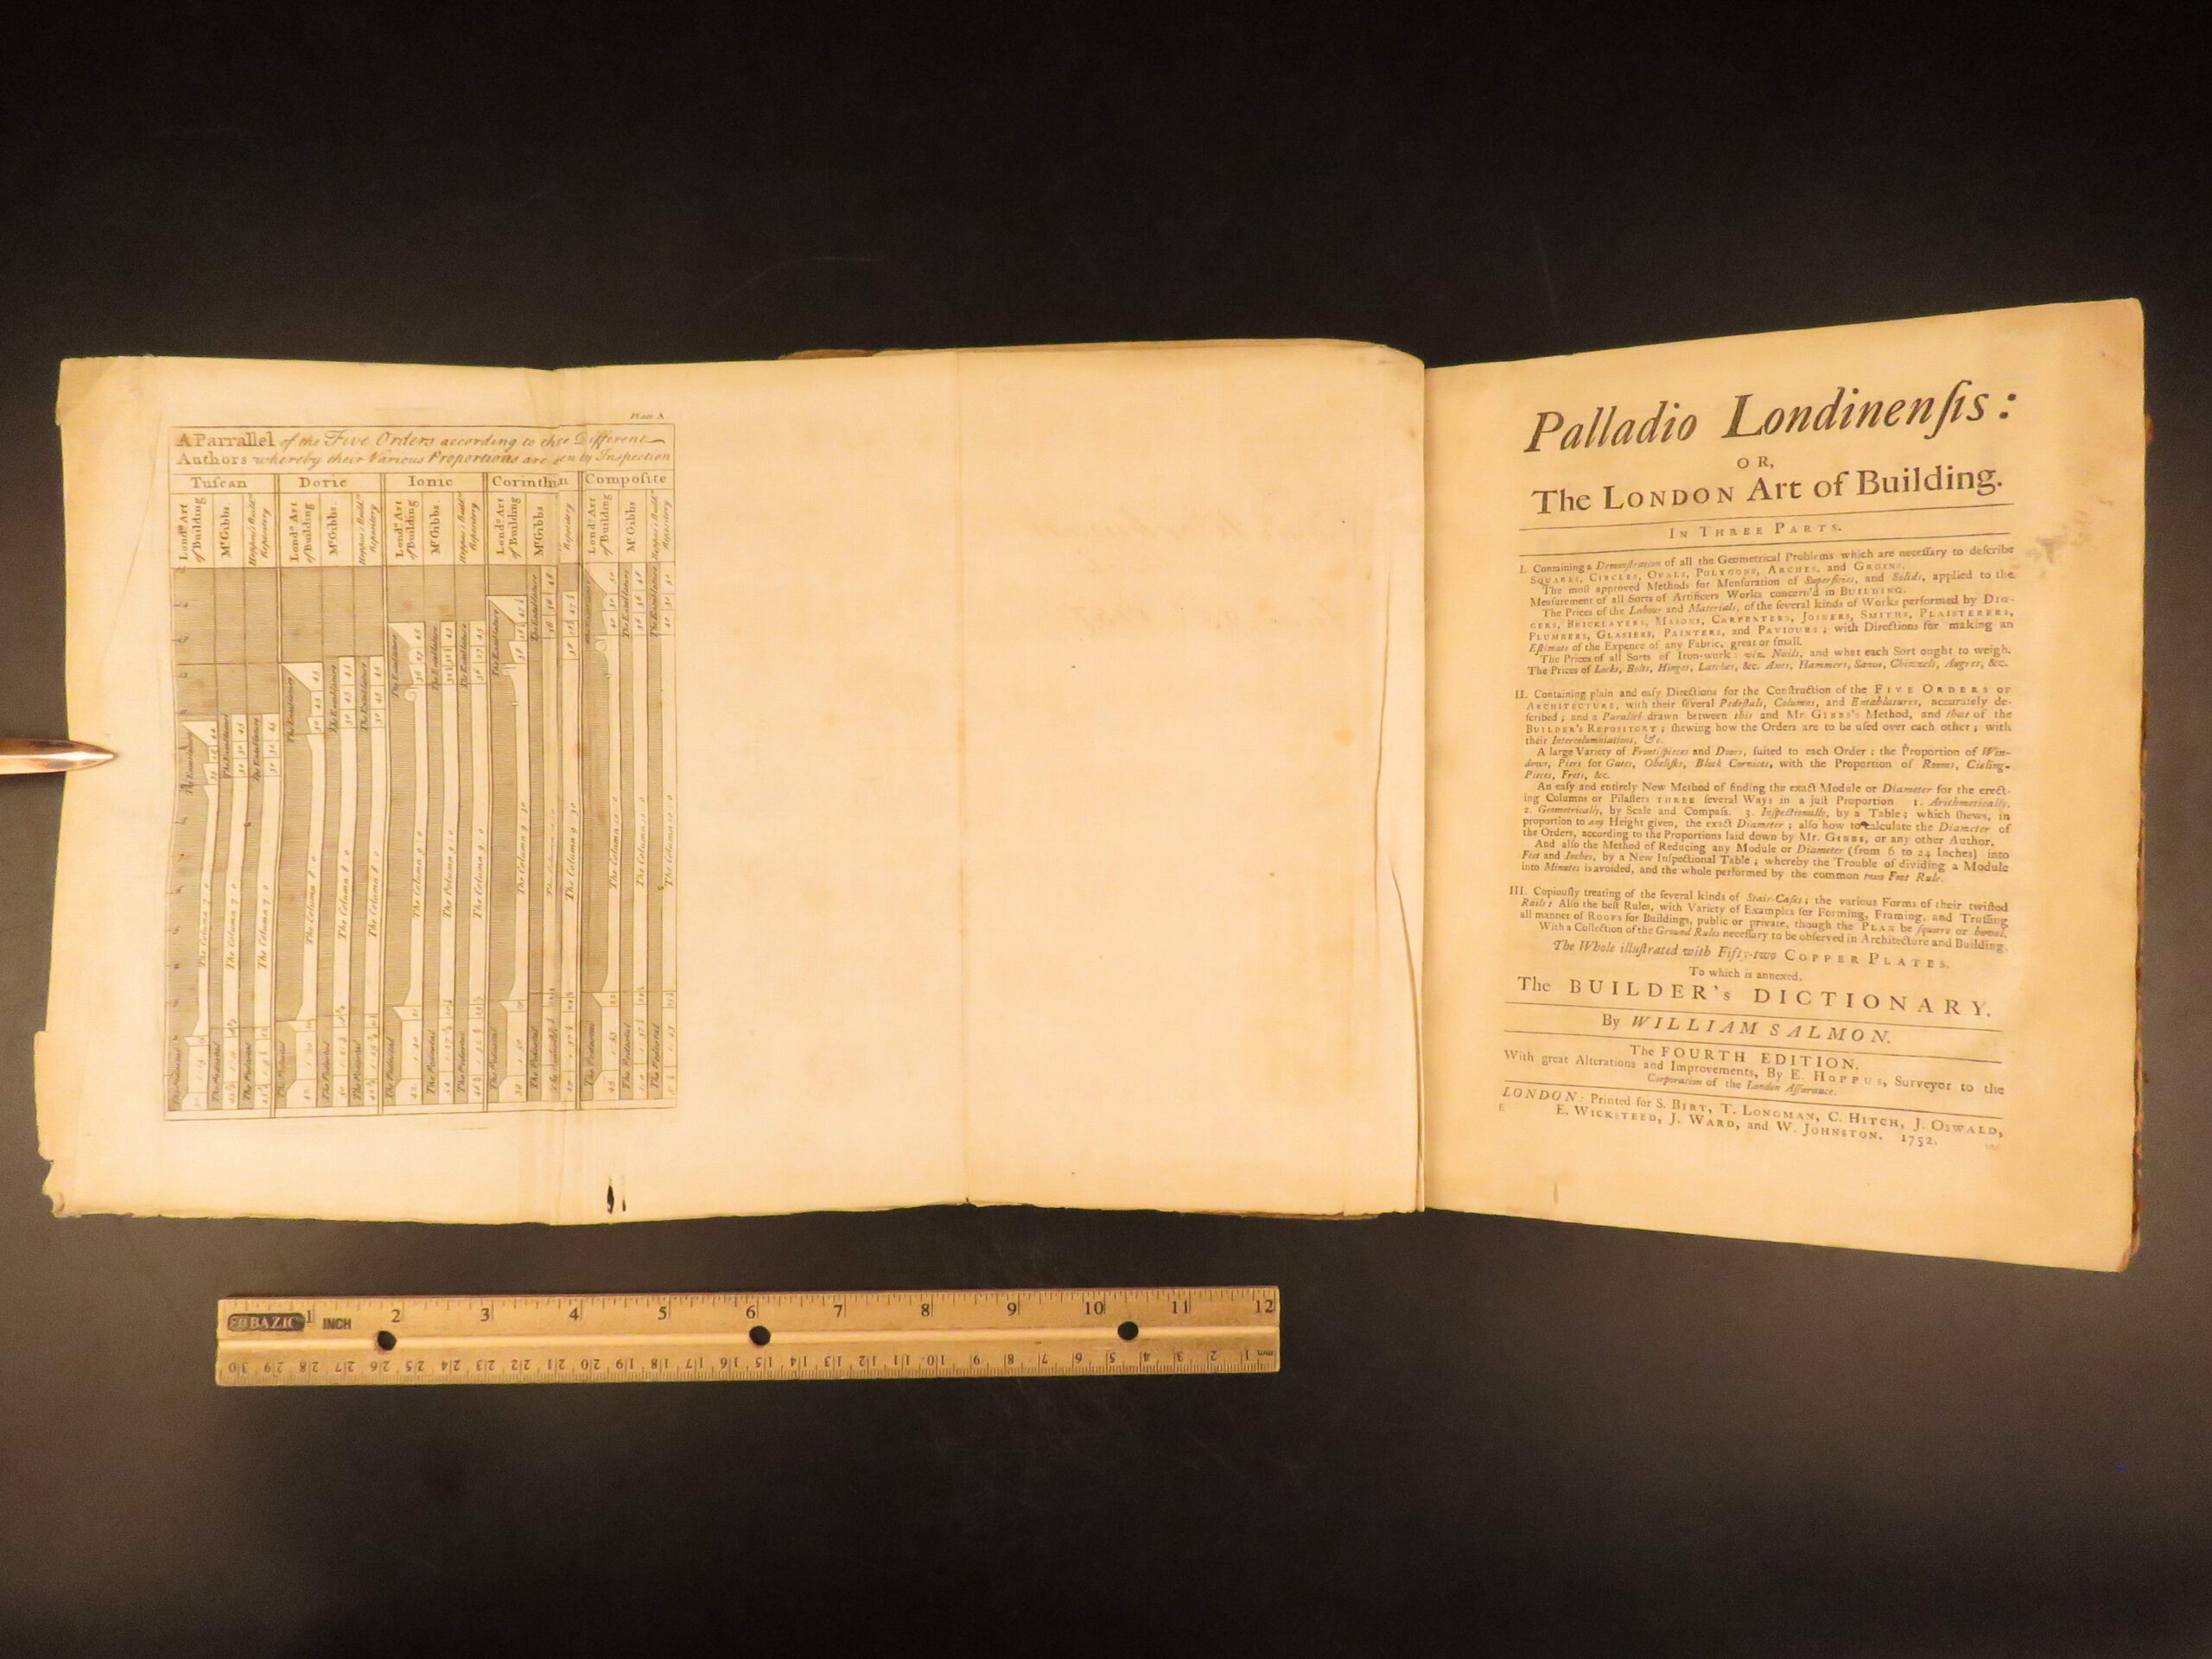 Plate A
A Parrallel of the Five Orders according to thre Different
Authors whereby their Various Proportions are sen by Inspection
Tuſcan Doric Ionic Corinthn Compoſite
Londn. Art of Building
Mr. Gibbs.
Hoppus's Build. Repository
Londn. Art of Building
Mr. Gibbs.
Hoppus's Build. Repository
Londn. Art of Building
Mr. Gibbs.
Hoppus's Build. Repository
Londn. Art of Building
Mr. Gibbs
Repository
Londn. Art of Building
Mr. Gibbs
Hoppus's Build. Repository
The Entablature
The Column 7 0
The Column 7 0
The Column 7 0
The Column 8 0
The Column 8 0
The Column 8 0
The Column 9 0
The Column 9 0
The Column 9 0
The Column 9 30
The Column 9 30
The Column 10 0
The Column 10 0
The Column 10 0
The Pedestal
Palladio Londinenſis:
OR,
The LONDON Art of Building.
IN THREE PARTS.
I. Containing a Demonſtration of all the Geometrical Problems which are neceſſary to deſcribe
SQUARES, CIRCLES, OVALS, POLYGONS, ARCHES, and GROINS.
The moſt approved Methods for Menſuration of Superficies, and Solids, applied to the
Meaſurement of all Sorts of Artificers Works concern'd in BUILDING.
The Prices of the Labour and Materials, of the ſeveral kinds of Works performed by DIG-
GERS, BRICKLAYERS, MASONS, CARPENTERS, JOINERS, SMITHS, PLAISTERERS,
PLUMBERS, GLASIERS, PAINTERS, and PAVIOURS; with Directions for making an
Eſtimate of the Expence of any Fabric, great or ſmall.
The Prices of all Sorts of Iron-work: viz. Nails, and what each Sort ought to weigh.
The Prices of Locks, Bolts, Hinges, Latches, &c. Axes, Hammers, Saws, Chizzels, Augres, &c.
II. Containing plain and eaſy Directions for the Conſtruction of the FIVE ORDERS OF
ARCHITECTURE, with their ſeveral Pedeſtals, Columns, and Entablatures, accurately de-
ſcribed; and a Parallel drawn between this and Mr. GIBBS's Method, and that of the
BUILDER'S REPOSITORY; ſhewing how the Orders are to be uſed over each other; with
their Intercolumniations, &c.
A large Variety of Frontiſpieces and Doors, ſuited to each Order; the Proportion of Win-
dows, Piers for Gates, Obeliſks, Block Cornices, with the Proportion of Rooms, Cieling-
Pieces, Frets, &c.
An eaſy and entirely New Method of finding the exact Module or Diameter for the erect-
ing Columns or Pilaſters THREE ſeveral Ways in a juſt Proportion 1. Arithmetically.
2. Geometrically, by Scale and Compaſs. 3. Inſpectionally, by a Table; which ſhews, in
proportion to any Height given, the exact Diameter; alſo how to calculate the Diameter of
the Orders, according to the Proportions laid down by Mr. GIBBS, or any other Author.
And alſo the Method of Reducing any Module or Diameter (from 6 to 24 Inches) into
Feet and Inches, by a New Inſpectional Table; whereby the Trouble of dividing a Module
into Minutes is avoided, and the whole performed by the common two Foot Rule.
III. Copiouſly treating of the ſeveral kinds of Stair-Caſes; the various Forms of their twiſted
Rails: Alſo the beſt Rules, with Variety of Examples for Forming, Framing, and Truſſing
all manner of ROOFS for Buildings, public or private, though the PLAN be ſquare or bevel.
With a Collection of the Ground Rules neceſſary to be obſerved in Architecture and Building.
The Whole illuſtrated with Fifty-two COPPER PLATES.
To which is annexed,
The BUILDER's DICTIONARY.
By WILLIAM SALMON.
The FOURTH EDITION.
With great Alterations and Improvements, By E. HOPPUS, Surveyor to the
Corporation of the London Aſſurance.
LONDON: Printed for S. BIRT, T. LONGMAN, C. HITCH, J. OSWALD,
E. WICKSTEED, J. WARD, and W. JOHNSTON. 1752.
BAZIC 1 INCH 2 3 4 5 6 7 8 9 10 11 12
30 29 28 27 26 25 24 23 22 21 20 19 18 17 16 15 14 13 12 11 10 9 8 7 6 5 4 3 2 1 mm